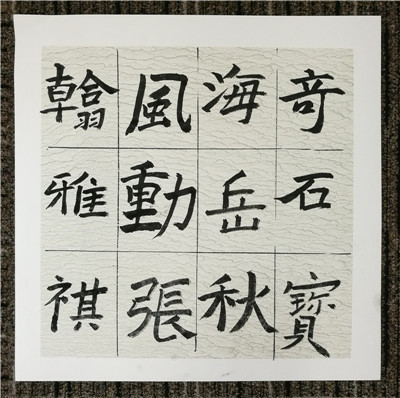 竒石寶
海岳秋
風動張
翰雅祺